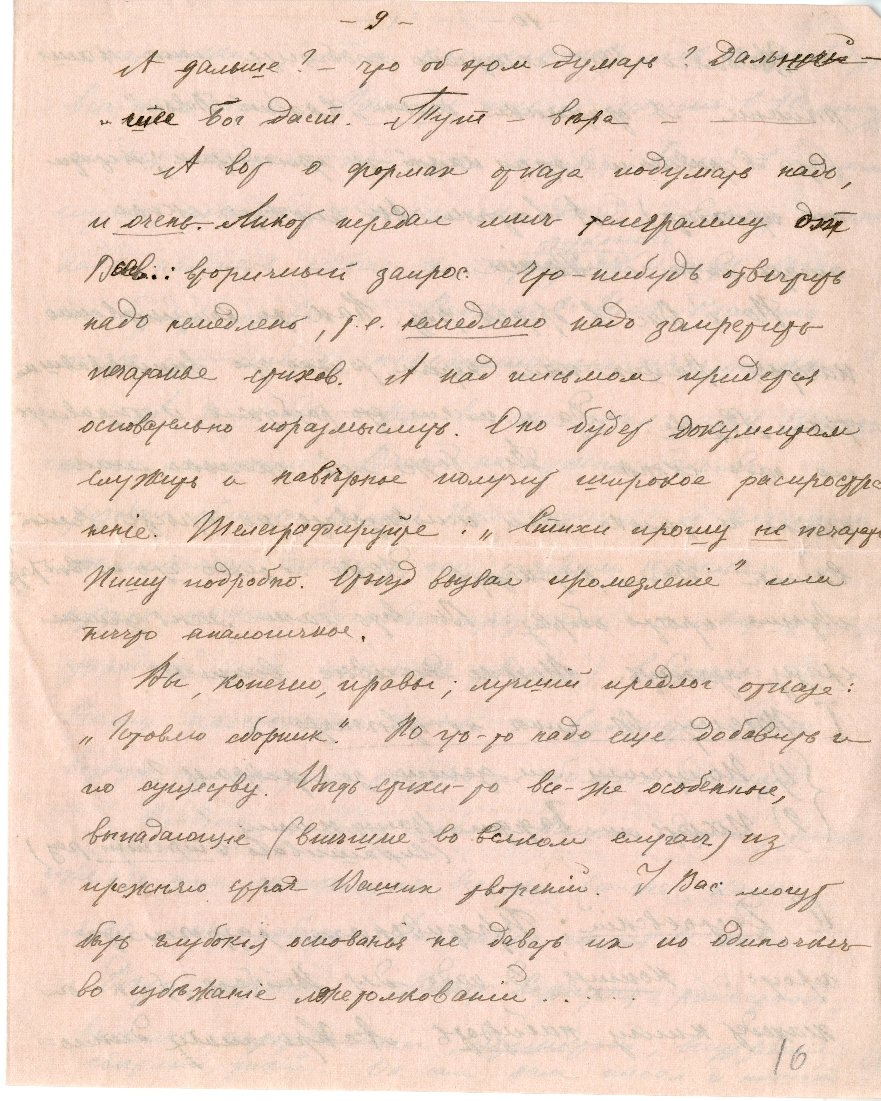 - 9 -
А дальше? – что об этом думать? Дальнѣй-
„шее Бог даст. Тут вѣра – –
А вот о формах отказа подумать надо,
и очень. Ликот передал мнѣ телеграмму от
вторичный запрос. Что-нибудь отвѣтить
надо немедлено, т.е. немедлено надо запретить
печатанье стихов. А над письмом придется
основательно поразмыслить. Оно будет документом
служить и навѣрное получит широкое распростра
неніе. Телеграфируйте: „Стихи прошу не печатать
Пишу подробно. Отъѣзд вызвал промедленіе" или
нѣчто аналогичное.
Вы, конечно, правы; лучший предлог отказа:
„Готовлю сборник". Но что-то надо еще добавить и
по существу. Вѣдь стихи-то все-же особенные,
выпадающіе (внѣшне во всяком случаѣ) из
прежняго строя Ваших твореній. У Вас могут
быть глубокія основанія не давать их по одиночкѣ
во избѣжаніе лжетолкованій . . . .
16